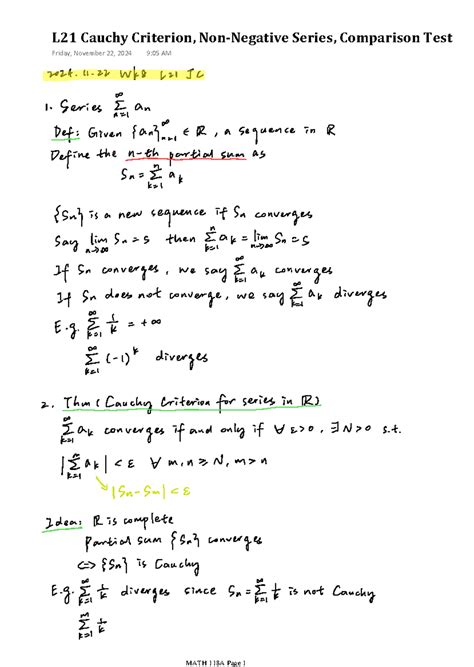 L21 Cauchy Criterion, Non-Negative Series, Comparison Test
Friday, November 22, 2024 9:05 AM
2024.11.22 Wk8 L21 JC
1. Series ∑_{n=1}^{∞} a_n
Def: Given {a_n}_{n=1}^{∞} ∈ ℝ, a sequence in ℝ
Define the n-th partial sum as
S_n = ∑_{k=1}^{n} a_k
{S_n} is a new sequence if S_n converges
Say lim_{n→∞} S_n = s then ∑_{k=1}^{n} a_k = lim_{n→∞} S_n = s
If S_n converges, we say ∑_{k=1}^{∞} a_k converges
If S_n does not converge, we say ∑_{k=1}^{∞} a_k diverges
E.g. ∑_{k=1}^{∞} 1/k = +∞
∑_{k=1}^{∞} (-1)^k diverges
2. Thm (Cauchy Criterion for series in ℝ)
∑_{k=1}^{∞} a_k converges if and only if ∀ ε>0, ∃N>0 s.t.
|∑_{k=1}^{n} a_k| < ε ∀ m,n ≥ N, m>n
|S_n - S_m| < ε
Idea: ℝ is complete
Partial sum {S_n} converges
<=> {S_n} is Cauchy
E.g. ∑_{k=1}^{∞} 1/k diverges since S_n = ∑_{k=1}^{∞} 1/k is not Cauchy
∑_{k=1}^{n} 1/k
MATH 118A Page 1